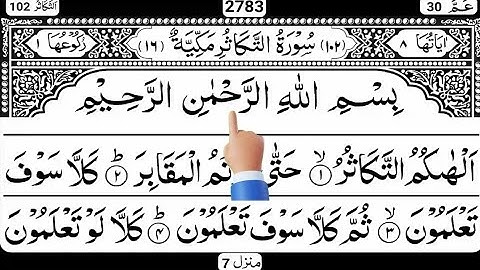 عَمَّ 30 2783 اَلتَّكَاثُر 102
اٰيَاتُهَا ٨ (١٠٢) سُوْرَةُ التَّكَاثُرِ مَكِّيَّةٌ (١٦) رُكُوْعُهَا ١
بِسْمِ اللهِ الرَّحْمٰنِ الرَّحِيْمِ
اَلْهٰىكُمُ التَّكَاثُرُ ۙ ١ حَتّٰى تُمُ الْمَقَابِرَ ؕ ٢ كَلَّا سَوْفَ
تَعْلَمُوْنَ ۙ ٣ ثُمَّ كَلَّا سَوْفَ تَعْلَمُوْنَ ؕ ٤ كَلَّا لَوْ تَعْلَمُوْنَ
منزل 7